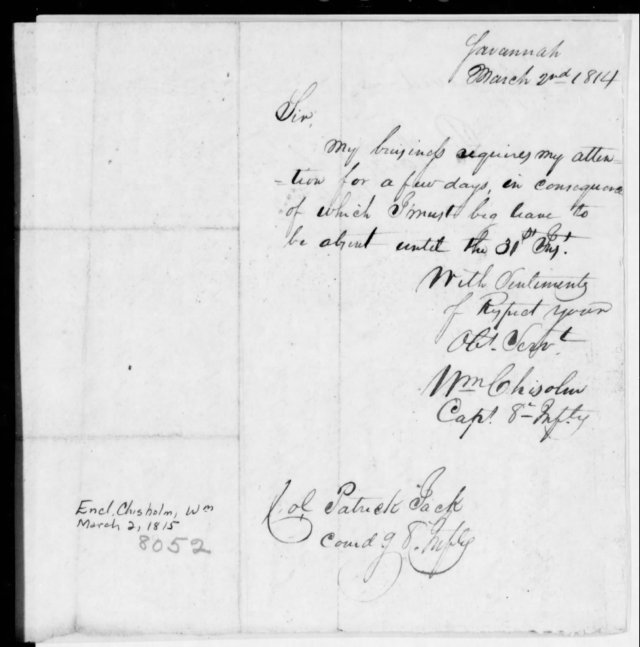 Savannah
March 2nd 1814
Sir,
My business requires my atten-
-tion for a few days, in consequence
of which I must beg leave to
be absent until the 31st Inst.
With Sentiments
of Respect your
Obt. Servt
Wm Chisolm
Capt. 8th Infty
Col Patrick Jack
comdg 8th Infty
Encl. Chisholm, Wm
March 2, 1815
8052